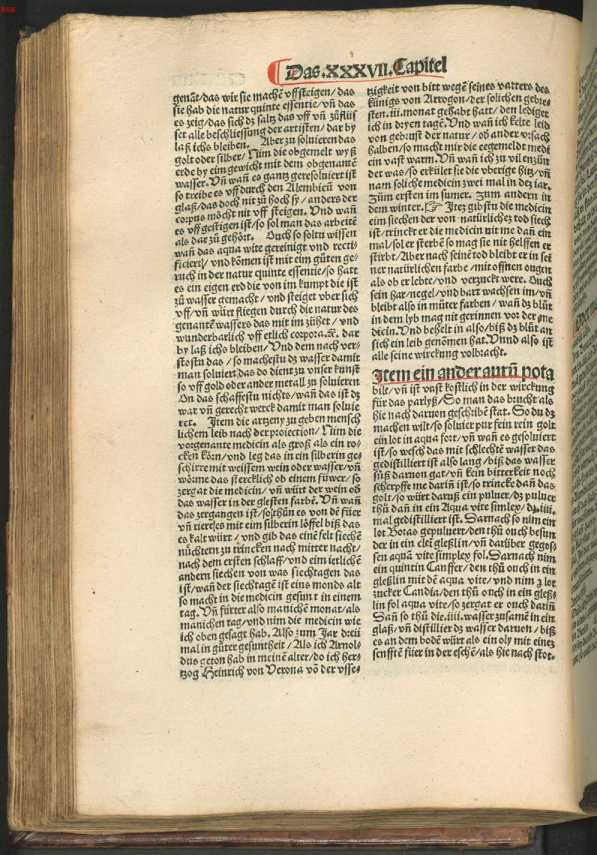 Das .XXXVII. Capitel
genāt/das wir sie machē vffsteigen/das
sie hab die natur quinte essentie/vñ das
es zeig/das sich dz saltz das vff vñ
set alle beschliessung der artisten/dar by
laß ichs bleiben. Aber zu soluieren das
golt oder silber/Nim die obgemelt wyß
erde by eim gewicht mit dem obgenantē
wasser. Vñ wañ es gantz geresoluiert ist
so treibe es vff durch den Alembicū von
glaß/das doch nit zů hoch sy/anders der
corpus mőcht nit vff steigen. Vnd wañ
es vff gestigen ist/so sol man das arbeitē
als dar zů gehőrt. Ouch so soltu wissen
wañ das aqua vite gereinigt vnd recti-
ficiert/vnd kōmen ist mit eim gůten ge-
ruch in der natur quinte essentie/so hatt
es ein eigen erd die von im kumpt die ist
zů wasser gemacht/vnd steiget vber sich
vff/vñ würt fliegen durch die natur des
genantē wassers das mit im zühet/vnd
wunderbarlich vff etlich corpora.ꝛc. dar
by laß ichs bleiben/Vnd dem nach ver-
stostu das/so machestu dz wasser damit
man soluiert/das do dient zu vnser kunst
so vff gold oder ander metall zů soluieren
On das schaffestu nichts/wañ das ist dz
war vñ gerecht werck damit man soluie
ret. Item die artzeny zu geben mensch
lichem leib nach der proiection/Nim die
vorgenante medicin als groß als ein ro-
cken kőrn/vnd leg das in ein silberin ge-
schirre mit weissem wein oder wasser/vñ
wőrme das stercklich ob einem füwer/so
zergat die medicin/vñ würt der wein ob
das wasser in der glesten farbē. Vñ wañ
das zergangen ist/so thůn es von dē füer
vñ rierets mit eim silberin lőffel biß das
es kalt würt/vnd gib das einē felt siechē
nüchtern zu trincken nach mitter nacht/
nach dem ersten schlaff/vnd eim ierlichē
andern siechen von was siechtagen das
ist/wañ der siechtagē ist eins monds alt
so macht in die medicin gesunt in einem
tag. Vñ fürter also manichē monat/als
manichen tag/vnd nim die medicin wie
ich oben gesagt hab. Also zum Jar dreü
mal in gůter gesuntheit/Als ich Arnol-
dus geton hab in meinē alter/do ich her-
tzog Heinrich von Verona vō der vsse-
tzigkeit von bitt wegē seines vatters des
künigs von Arrogon/der solichen gebre-
sten .iii. monat gehabt hatt/den lediget
ich in dryen tagē. Vnd wañ ich kelte leid
von gebrust der natur/ob ander vrsach
halben/so macht mir die eegemeldt medi
ein vast warm. Vñ wañ ich zů vil enzün
det was/so erkület sie die vberige hitz/vñ
nam soliche medicin zwei mal in dez iar.
Zům ersten im sumer. zum andern in
dem winter. ☞ Itez gib stu die medicin
eim siechen der von natürlichez tod siech
ist/trinckt er die medicin nit me dañ ein
mal/sol er sterbē so mag sie nit helffen er
stirbt/Aber nach seinē tod bleibt er in sei
ner natürlichen farbe/mit offnen ougen
als ob er lebte/vnd verzuckt were. Ouch
sein har/negel/vnd bart wachsen im/vñ
bleibt also in můter farben/wañ dz blůt
in dem lyb mag nit gerinnen vor der me
dicin. Vnd behelt in also/biß dz blůt an
sich ein leib genōmen hat. Vnnd also ist
alle seine wirckung volbracht.
Item ein ander aurū pota
bile/vñ ist vast kostlich in der wirckung
für das parlyß/So man das brucht als
hie nach daruon geschribē stat. So du dz
machen wilt/so soluier pur fein rein golt
ein lot in aqua fort/vñ wañ es gesoluiert
ist/so wesch das mit schlechtē wasser das
gedistilliert ist also lang/biß das wasser
süß darnon gat/vñ kein bitterkeit noch
scherpffe me darin ist/so trincke dañ das
golt/so würt daruß ein puluer/dz puluer
thů dañ in ein Aqua vite simley/dz .iiii.
mal gedistilliert ist. Darnach so nim ein
lot Botas gepuluert/den thů ouch besun
der in ein clei gleßlin/vñ darüber gegos-
sen aquā vite simplex fol. Darnach nim
ein quintin Canffer/den thů ouch in ein
gleßlin mit dē aqua vite/vnd nim ʒ lot
zucker Candia/den thů ouch in ein gleß-
lin fol aqua vite/so zergat er ouch dariñ
Dañ so thů die .iiii. wasser zusamē in ein
glaß/vñ distillier dz wasser daruon/biß
es an dem bodē würt als ein oly mit einez
senfftē füer in der eschē/als hie nach stot.